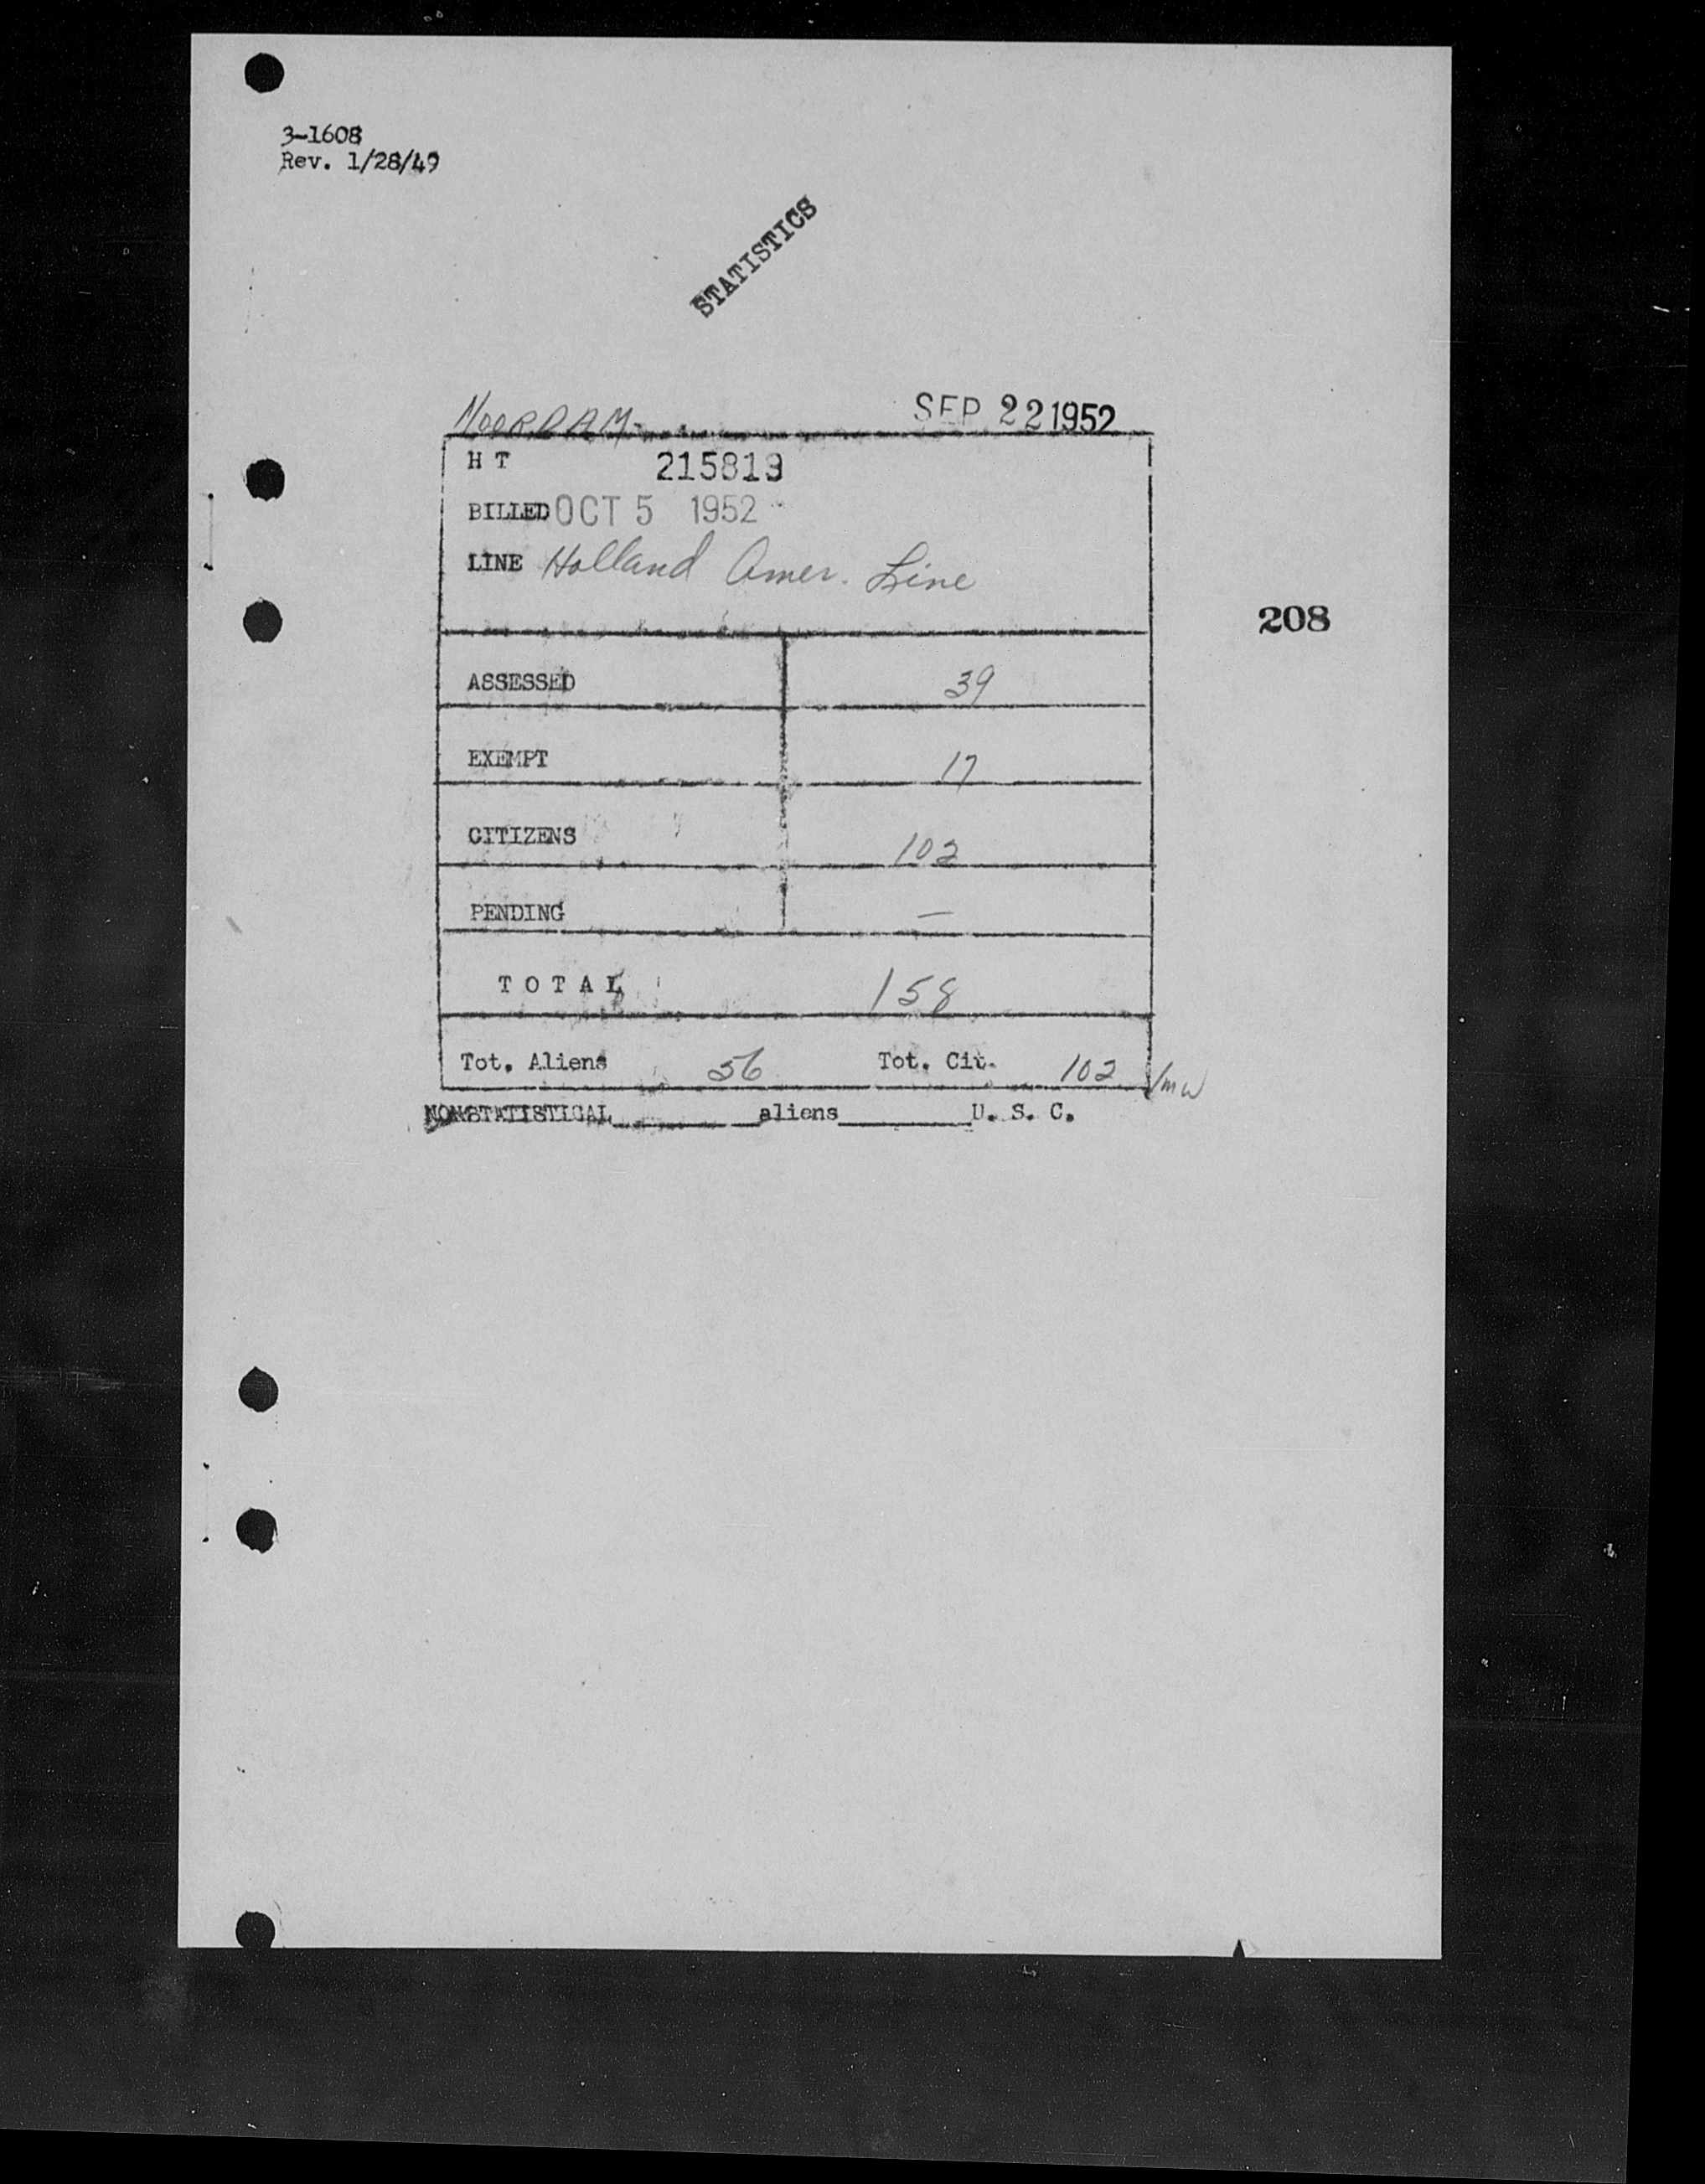 3-1608
Rev. 1/28/49
STATISTICS
NOORDAM
SEP 22 1952
H T 215813
BILLED OCT 5 1952
LINE Holland Amer. Line
208
ASSESSED 39
EXEMPT 17
CITIZENS 102
PENDING —
TOTAL 158
Tot. Aliens 56 Tot. Cit. 102
NONSTATISTICAL aliens U. S. C.